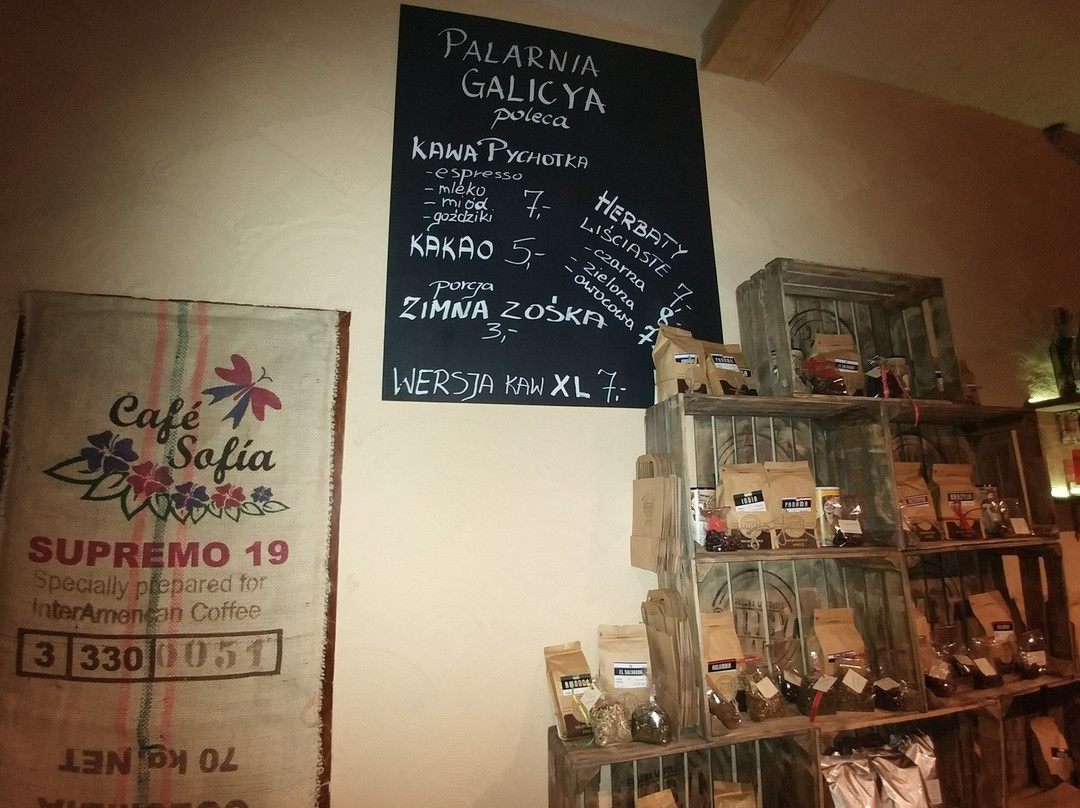 PALARNIA
GALICYA
poleca
KAWA PYCHOTKA
- espresso
- mleko
- miód 7,-
- goździki
KAKAO 5,-
porcja
ZIMNA ZOŚKA
3,-
WERSJA KAW XL 7,-
HERBATY
LIŚCIASTE
- czarna 7,-
- zielona 8,-
- owocowa 7
Café
Sofía
SUPREMO 19
Specially prepared for
InterAmerican Coffee
3 330 0051
70 kg NET
COLOMBIA
PANAMA
INDIA
PANAMA
BRAZYLIA
KOLUMBIA
RWANDA
EL SALVADOR